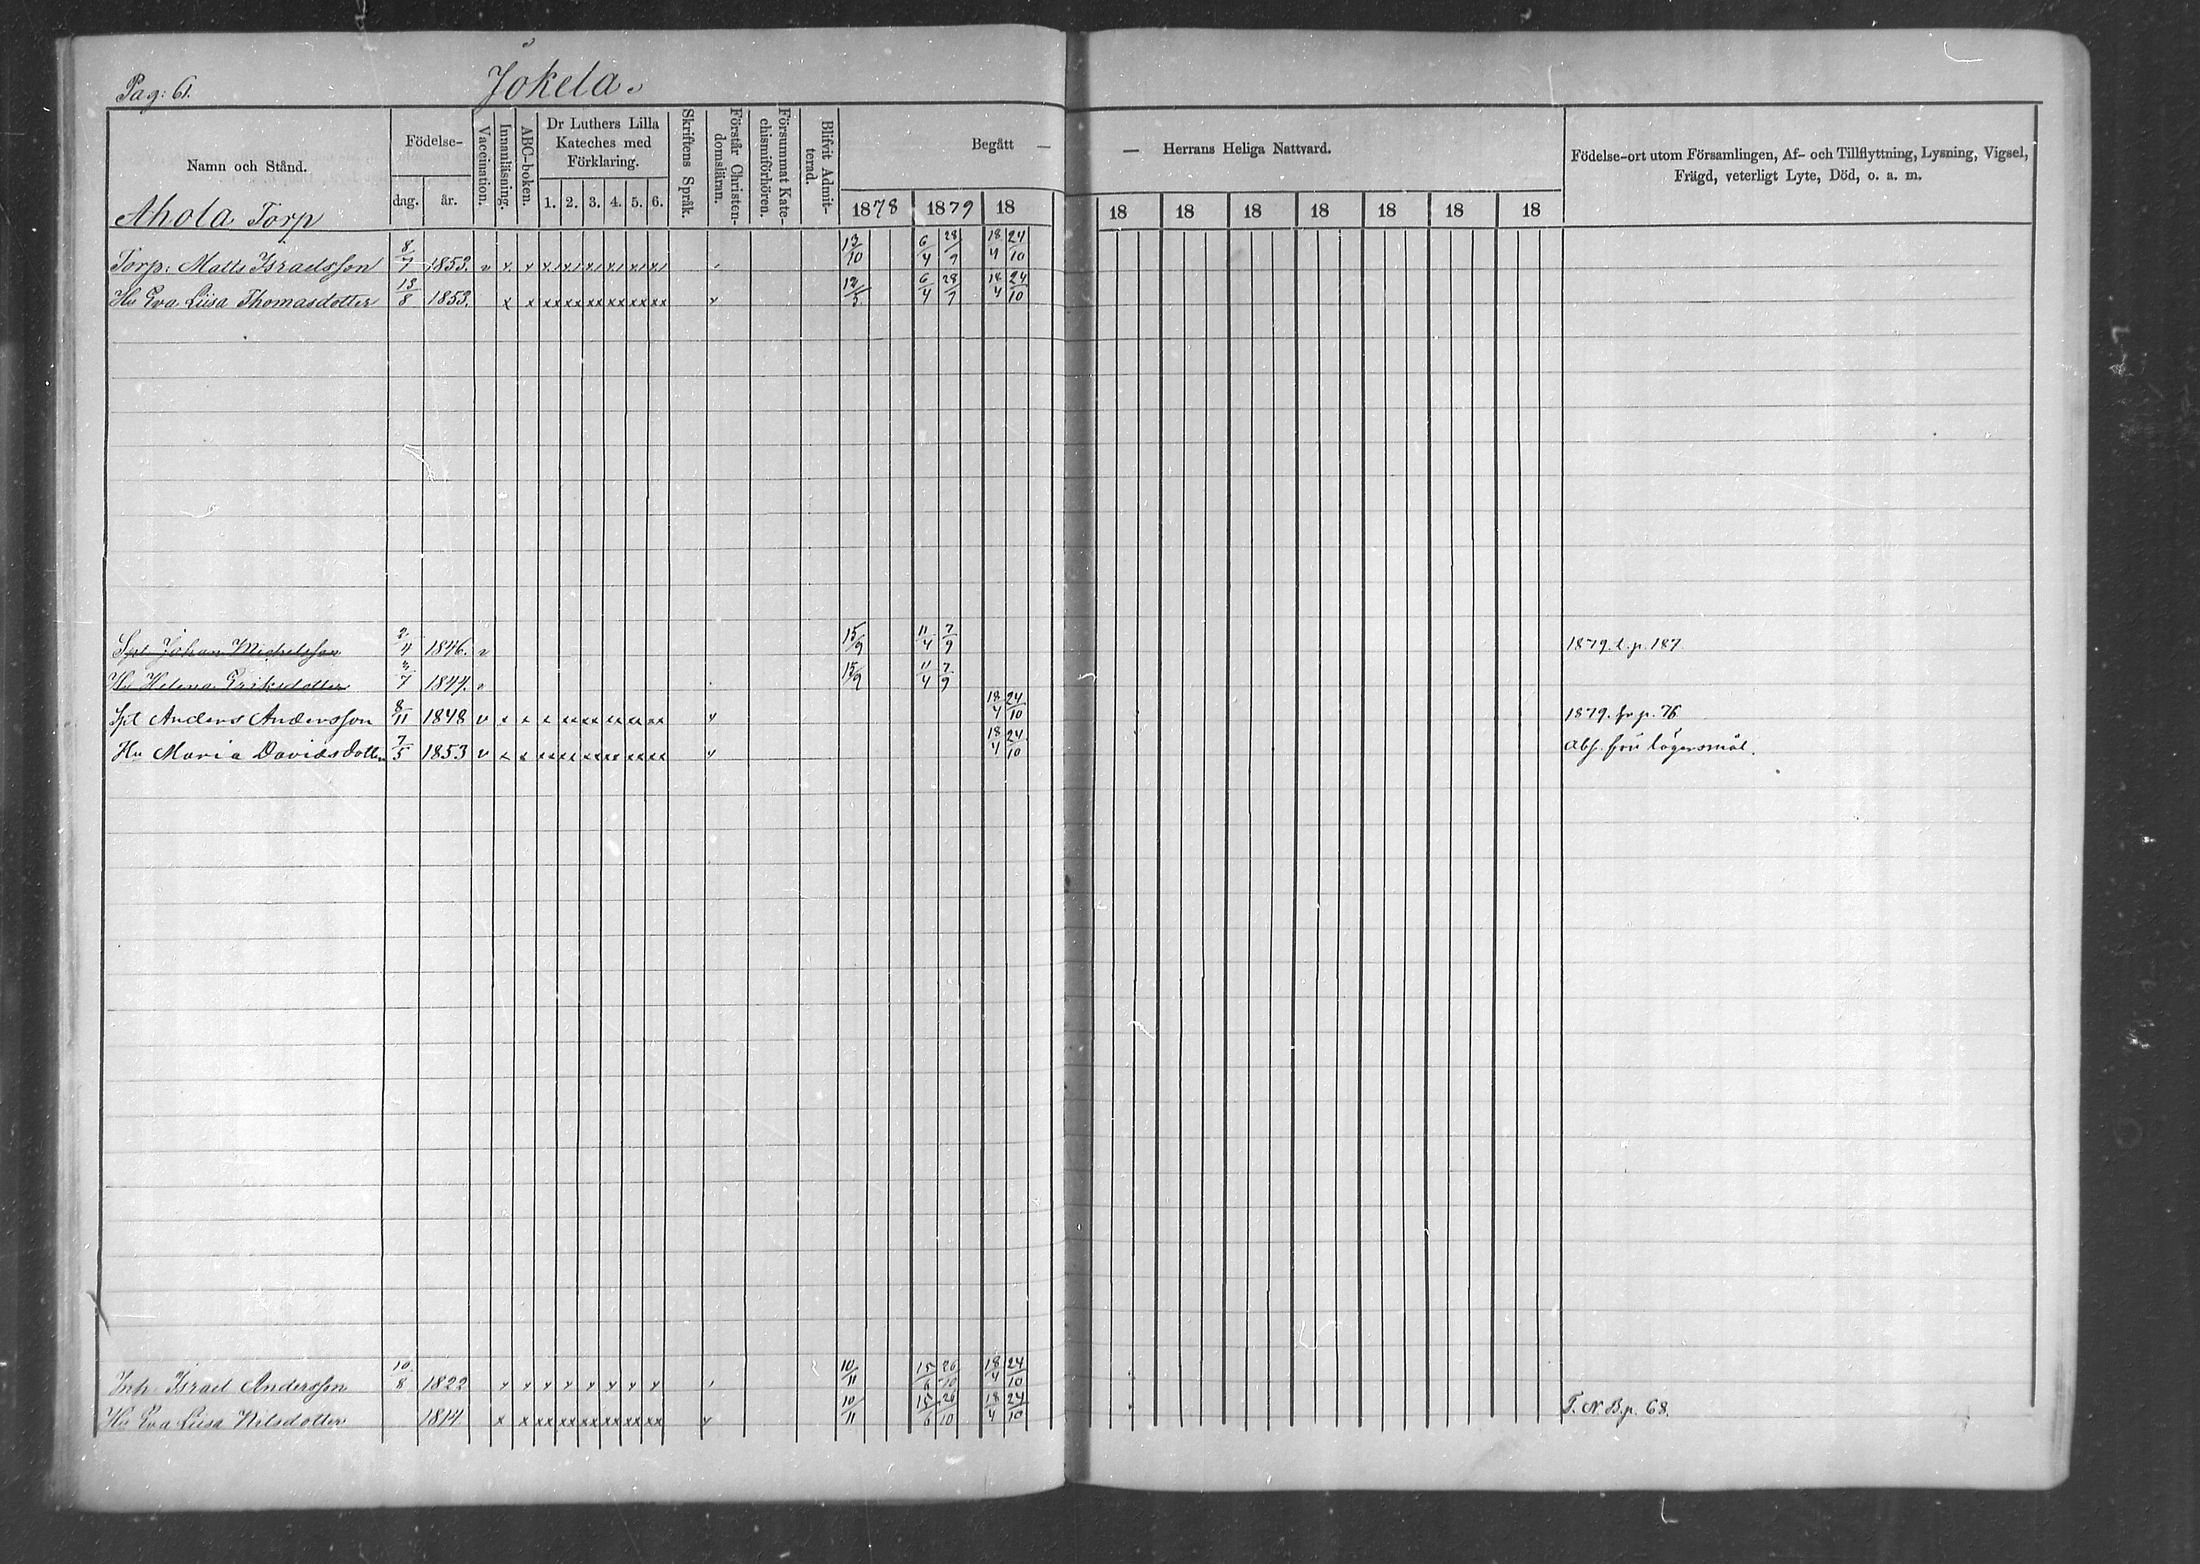 Pag: 61. Jokela.
Namn och Stånd. Födelse- dag. år. Vaccination. Innanläsning. ABC-boken. Dr Luthers Lilla Kateches med Förklaring. 1. 2. 3. 4. 5. 6. Skriftens Språk. Förstår Christendomsläran. Försummat Katechismiförhören. Blifvit Admitterad. Begått — — Herrans Heliga Nattvard. Födelse-ort utom Församlingen, Af- och Tillflyttning, Lysning, Vigsel, Frägd, veterligt Lyte, Död, o. a. m.
1878 1879 18 18 18 18 18 18 18 18
Ahola Torp
Torp: Matts Israelsson 8/7 1853. v x x x x x x x x 13/10 6/4 28/9 18/4 24/10
Hu Eva Liisa Thomasdotter 13/8 1853. x x xx xx xx xx xx xx x 12/5 6/4 28/9 18/4 24/10
Spt Johan Michelsson 2/4 1846. v 15/9 11/4 7/9 1879. t. p. 187
Hu Helena Eriksdotter 3/7 1844. v 15/9 11/4 7/9
Spt Anders Andersson 8/11 1848 v x x x xx xx xx xx xx x 18/4 24/10 1879. fr p. 76
Hu Maria Davidsdotter 7/5 1853 v x x xx xx xx xx xx xx x 18/4 24/10 Abs. för lägersmål.
Inh. Israel Andersson 10/8 1822 x x x x x x x x 10/11 15/6 26/10 18/4 24/10
Hu Eva Liisa Nilsdotter 1814 x x xx xx xx xx xx xx x 10/11 15/6 26/10 18/4 24/10 T. N B. p. 68.